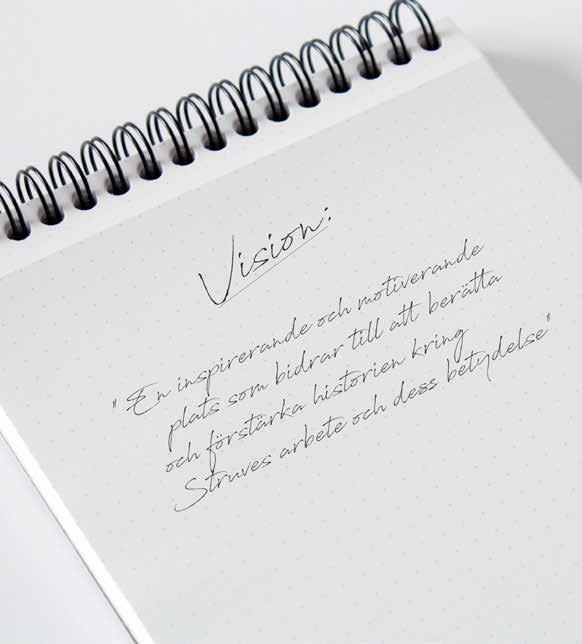 Vision:
"En inspirerande och motiverande
plats som bidrar till att berätta
och förstärka historien kring
Struves arbete och dess betydelse"